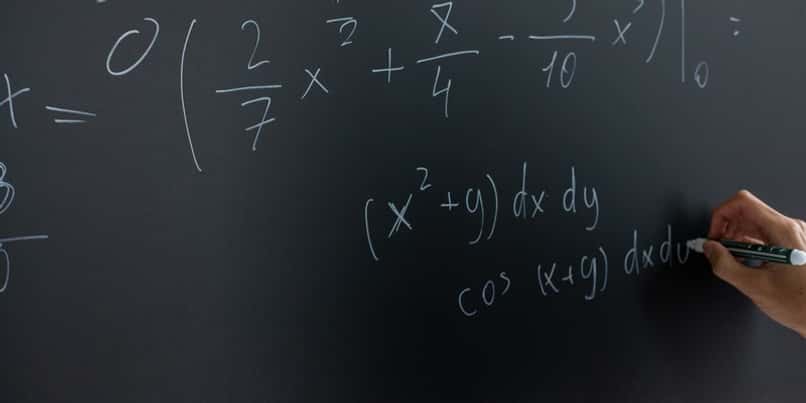 x = 0 ( 2/7 x /2 + x/4 - /10 x ) | 0 =
(x² + y) dx dy
cos (x+y) dxdy